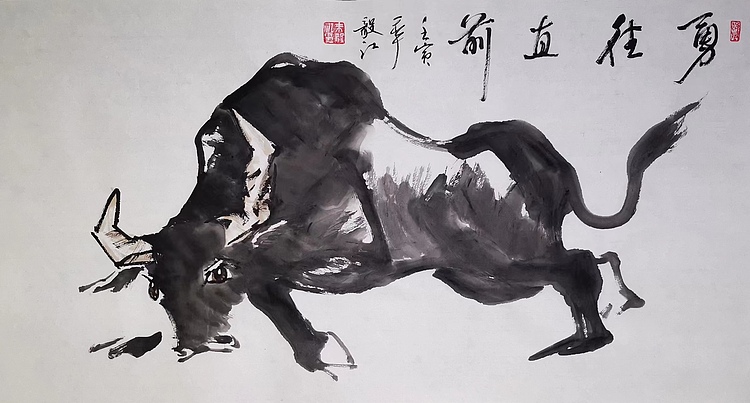 勇往直前
壬寅
年
毅江